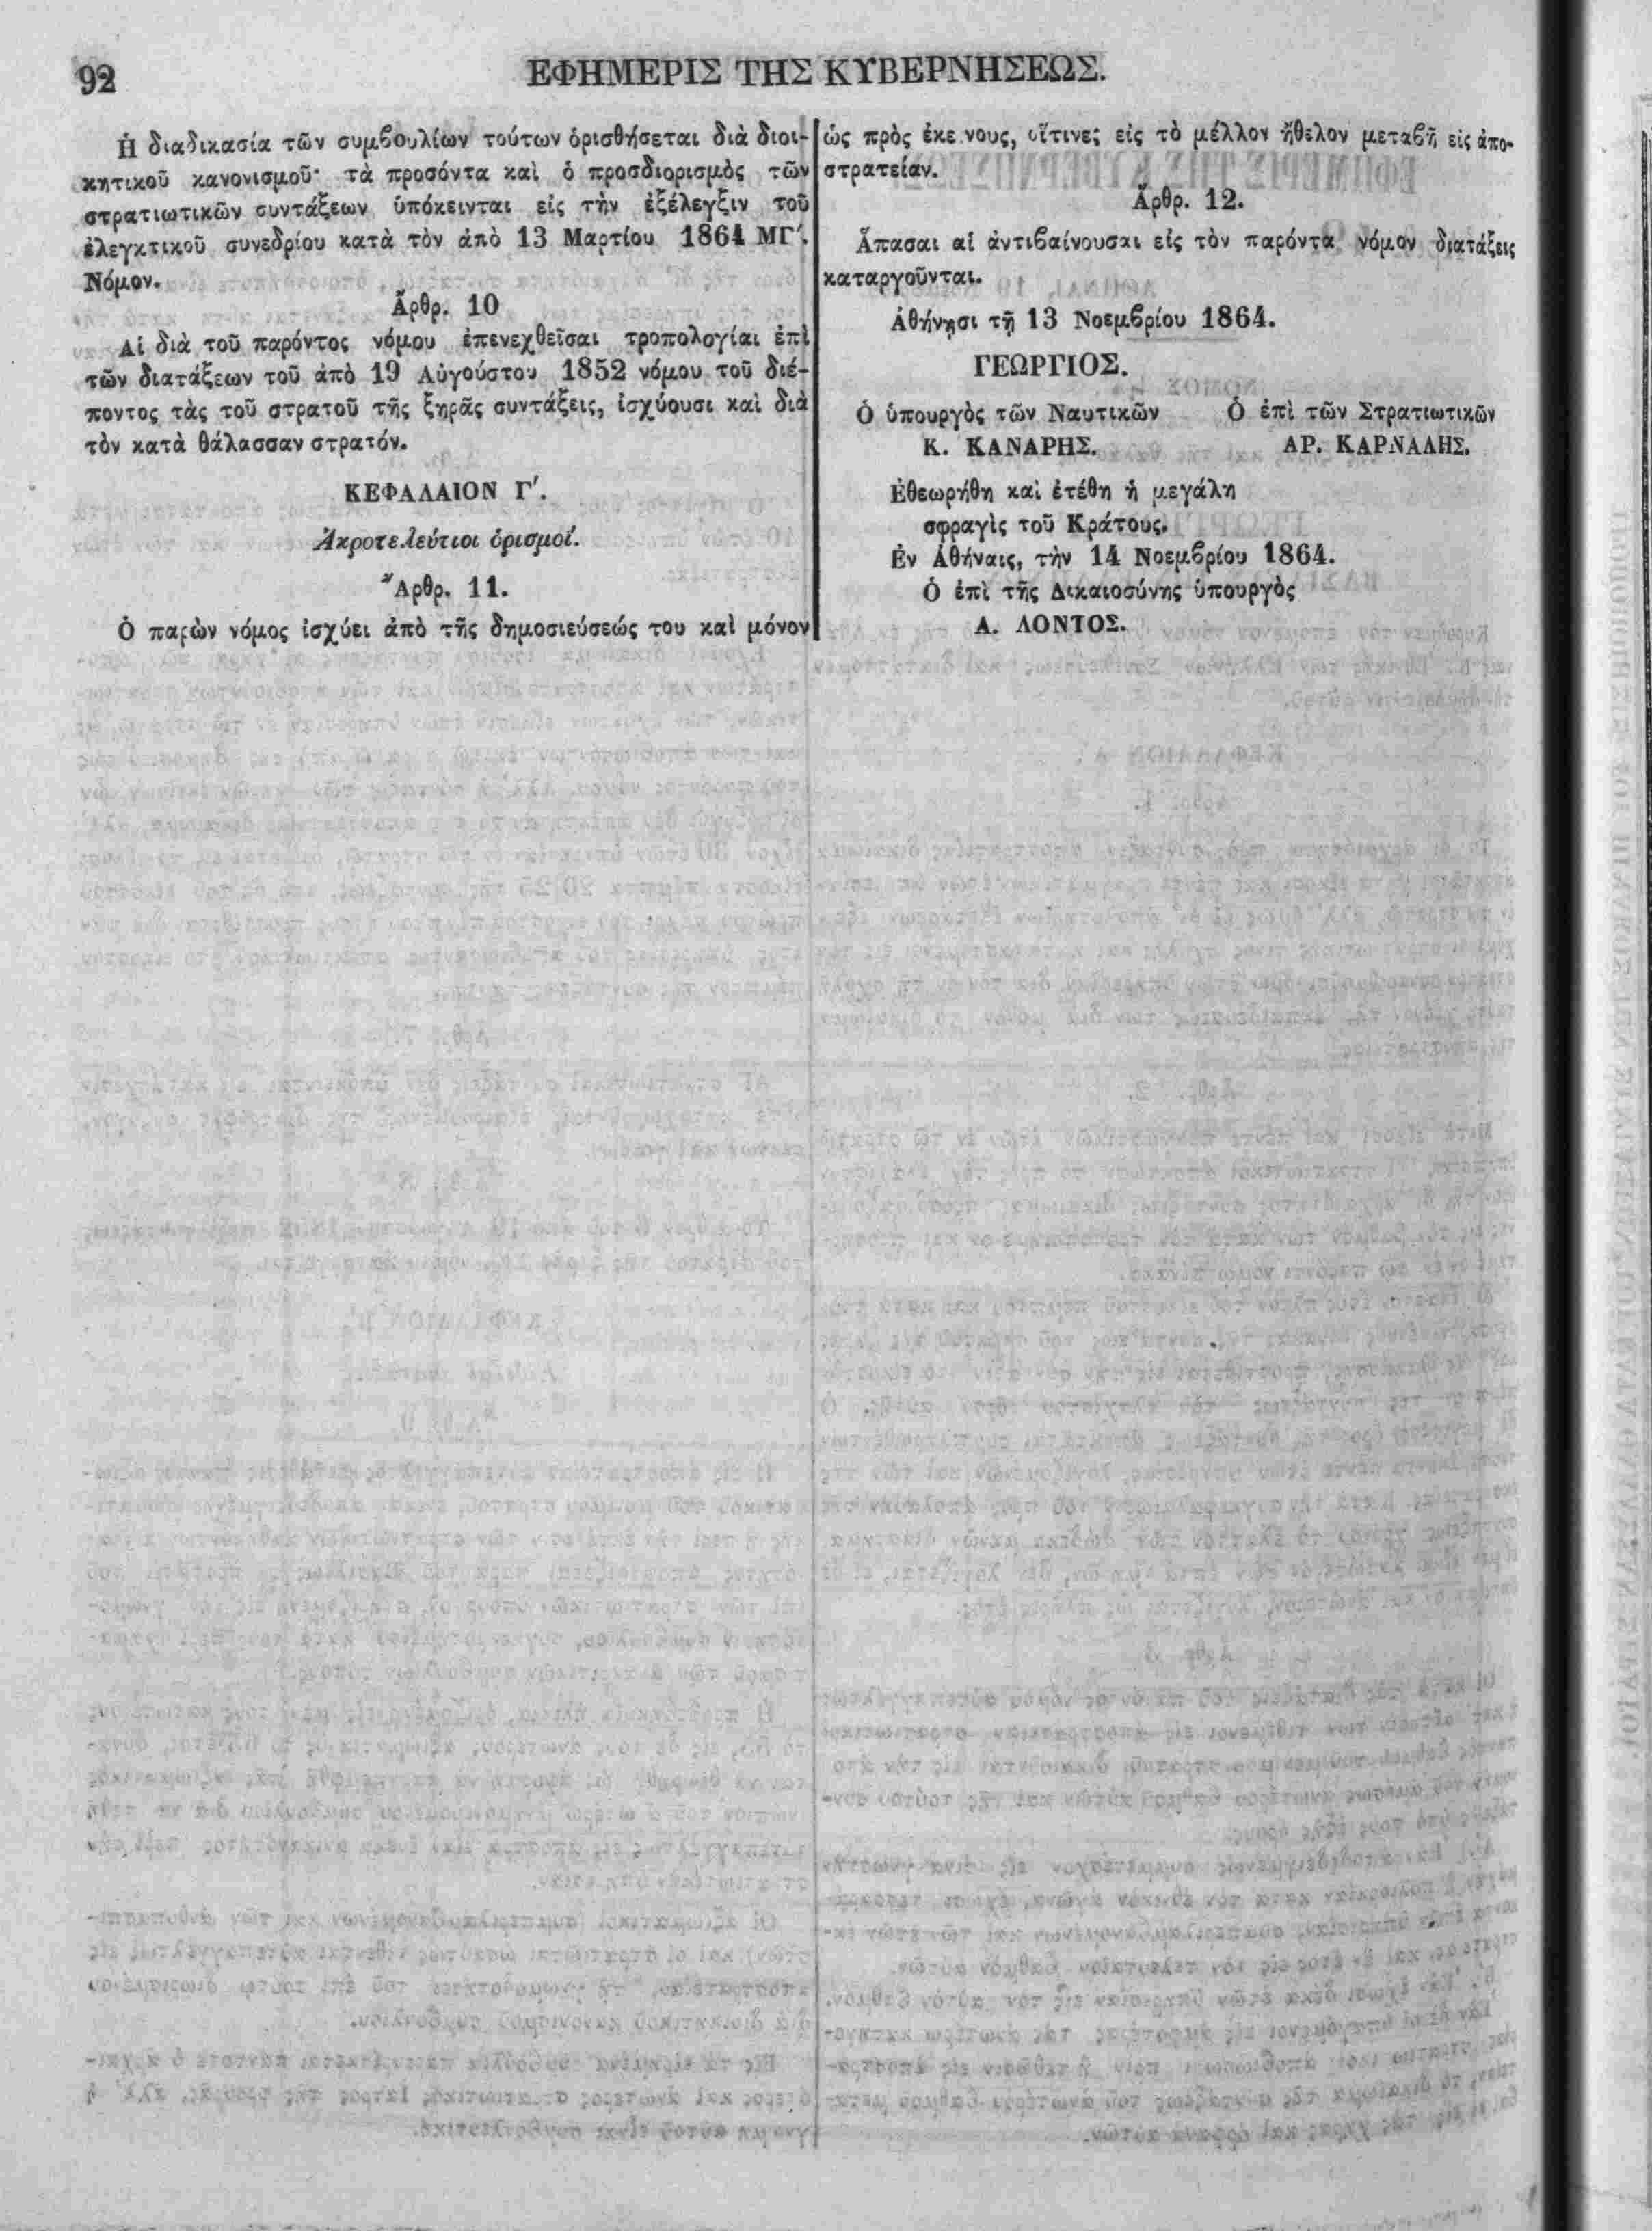 92
ΕΦΗΜΕΡΙΣ ΤΗΣ ΚΥΒΕΡΝΗΣΕΩΣ.
Ἡ διαδικασία τῶν συμβουλίων τούτων ὁρισθήσεται διὰ διοι-
κητικοῦ κανονισμοῦ· τὰ προσόντα καὶ ὁ προσδιορισμὸς τῶν
στρατιωτικῶν συντάξεων ὑπόκεινται εἰς τὴν ἐξέλεγξιν τοῦ
ἐλεγκτικοῦ συνεδρίου κατὰ τὸν ἀπὸ 13 Μαρτίου 1864 ΜΓ′.
Νόμον.
Ἄρθρ. 10
Αἱ διὰ τοῦ παρόντος νόμου ἐπενεχθεῖσαι τροπολογίαι ἐπὶ
τῶν διατάξεων τοῦ ἀπὸ 19 Αὐγούστου 1852 νόμου τοῦ διέ-
ποντος τὰς τοῦ στρατοῦ τῆς ξηρᾶς συντάξεις, ἰσχύουσι καὶ διὰ
τὸν κατὰ θάλασσαν στρατόν.
ΚΕΦΑΛΑΙΟΝ Γ′.
Ἀκροτελεύτιοι ὁρισμοί.
Ἄρθρ. 11.
Ὁ παρὼν νόμος ἰσχύει ἀπὸ τῆς δημοσιεύσεώς του καὶ μόνον
ὡς πρὸς ἐκείνους, οἵτινες εἰς τὸ μέλλον ἤθελον μεταβῆ εἰς ἀπο-
στρατείαν.
Ἄρθρ. 12.
Ἅπασαι αἱ ἀντιβαίνουσαι εἰς τὸν παρόντα νόμον διατάξεις
καταργοῦνται.
Ἀθήνῃσι τῇ 13 Νοεμβρίου 1864.
ΓΕΩΡΓΙΟΣ.
Ὁ ὑπουργὸς τῶν Ναυτικῶν Ὁ ἐπὶ τῶν Στρατιωτικῶν
Κ. ΚΑΝΑΡΗΣ. ΑΡ. ΚΑΡΝΑΛΗΣ.
Ἐθεωρήθη καὶ ἐτέθη ἡ μεγάλη
σφραγὶς τοῦ Κράτους.
Ἐν Ἀθήναις, τὴν 14 Νοεμβρίου 1864.
Ὁ ἐπὶ τῆς Δικαιοσύνης ὑπουργὸς
Α. ΛΟΝΤΟΣ.